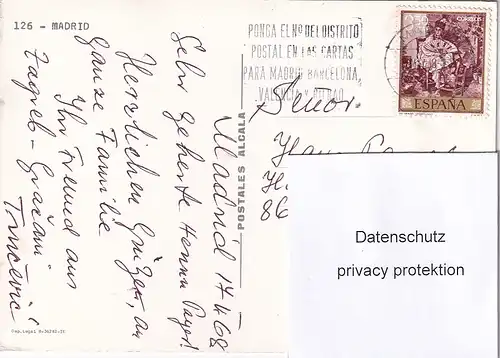 126 - MADRID
PONGA EL Nº DEL DISTRITO
POSTAL EN LAS CARTAS
PARA MADRID BARCELONA,
VALENCIA Y BILBAO
CORREOS
ESPAÑA
POSTALES ALCALA
Madrid 17.4.68
Sehr geherte Herrn Payer!
Herrlichen Grüzen an
ganze Familie
Ihr Freund aus
Zagreb - Gračani
Señor.
86
Datenschutz
privacy protektion